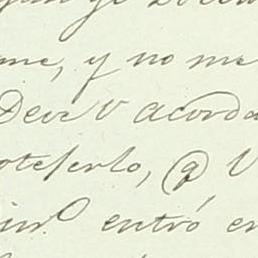 me, y no me
Deve V acorda
oteserlo, q V
in.º entró en